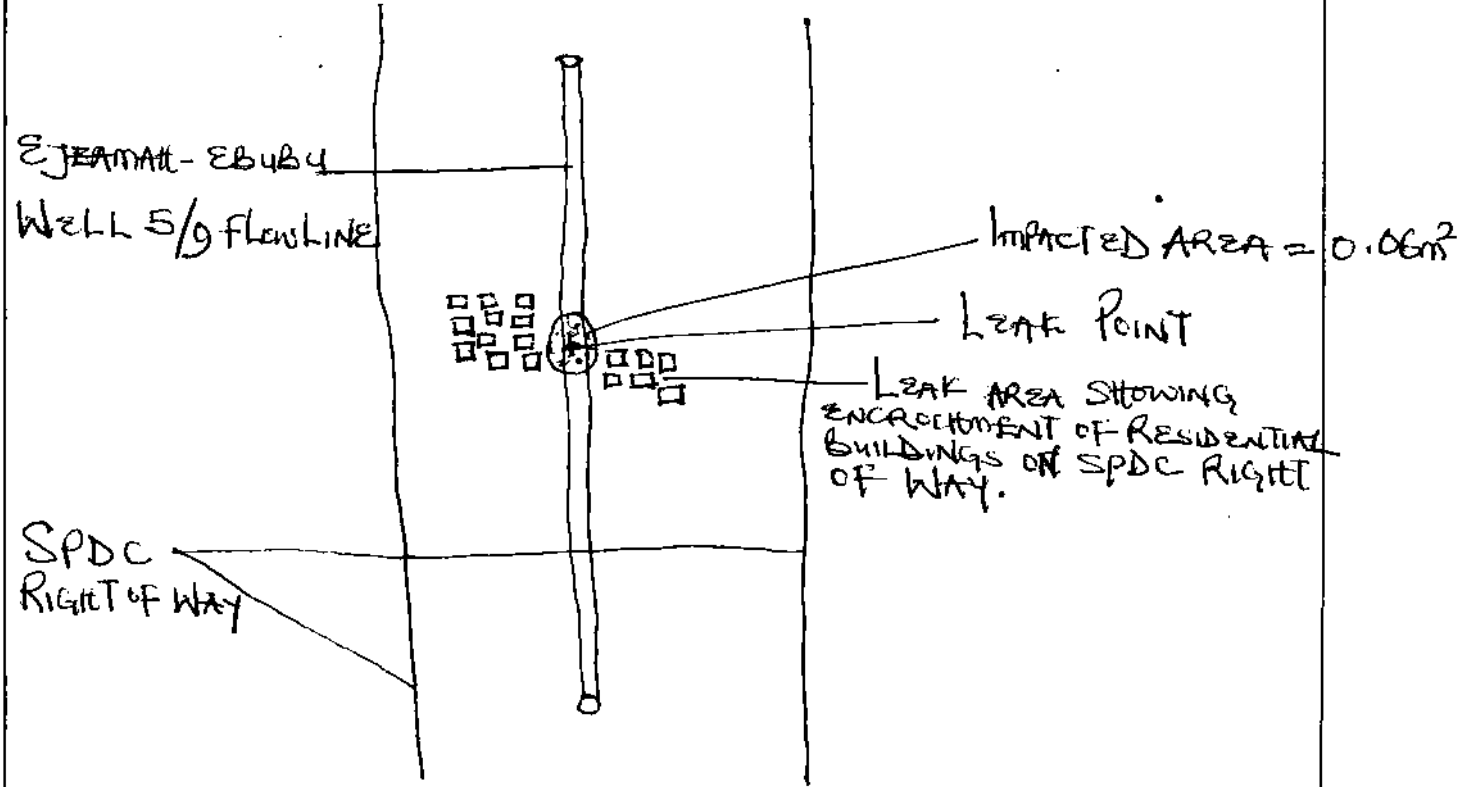 EJEAMAH-EBUBU
WELL 5/9 FLOWLINE
IMPACTED AREA = 0.06m²
LEAK POINT
LEAK AREA SHOWING
ENCROCHMENT OF RESIDENTIAL
BUILDINGS ON SPDC RIGHT
OF WAY.
SPDC
RIGHT OF WAY